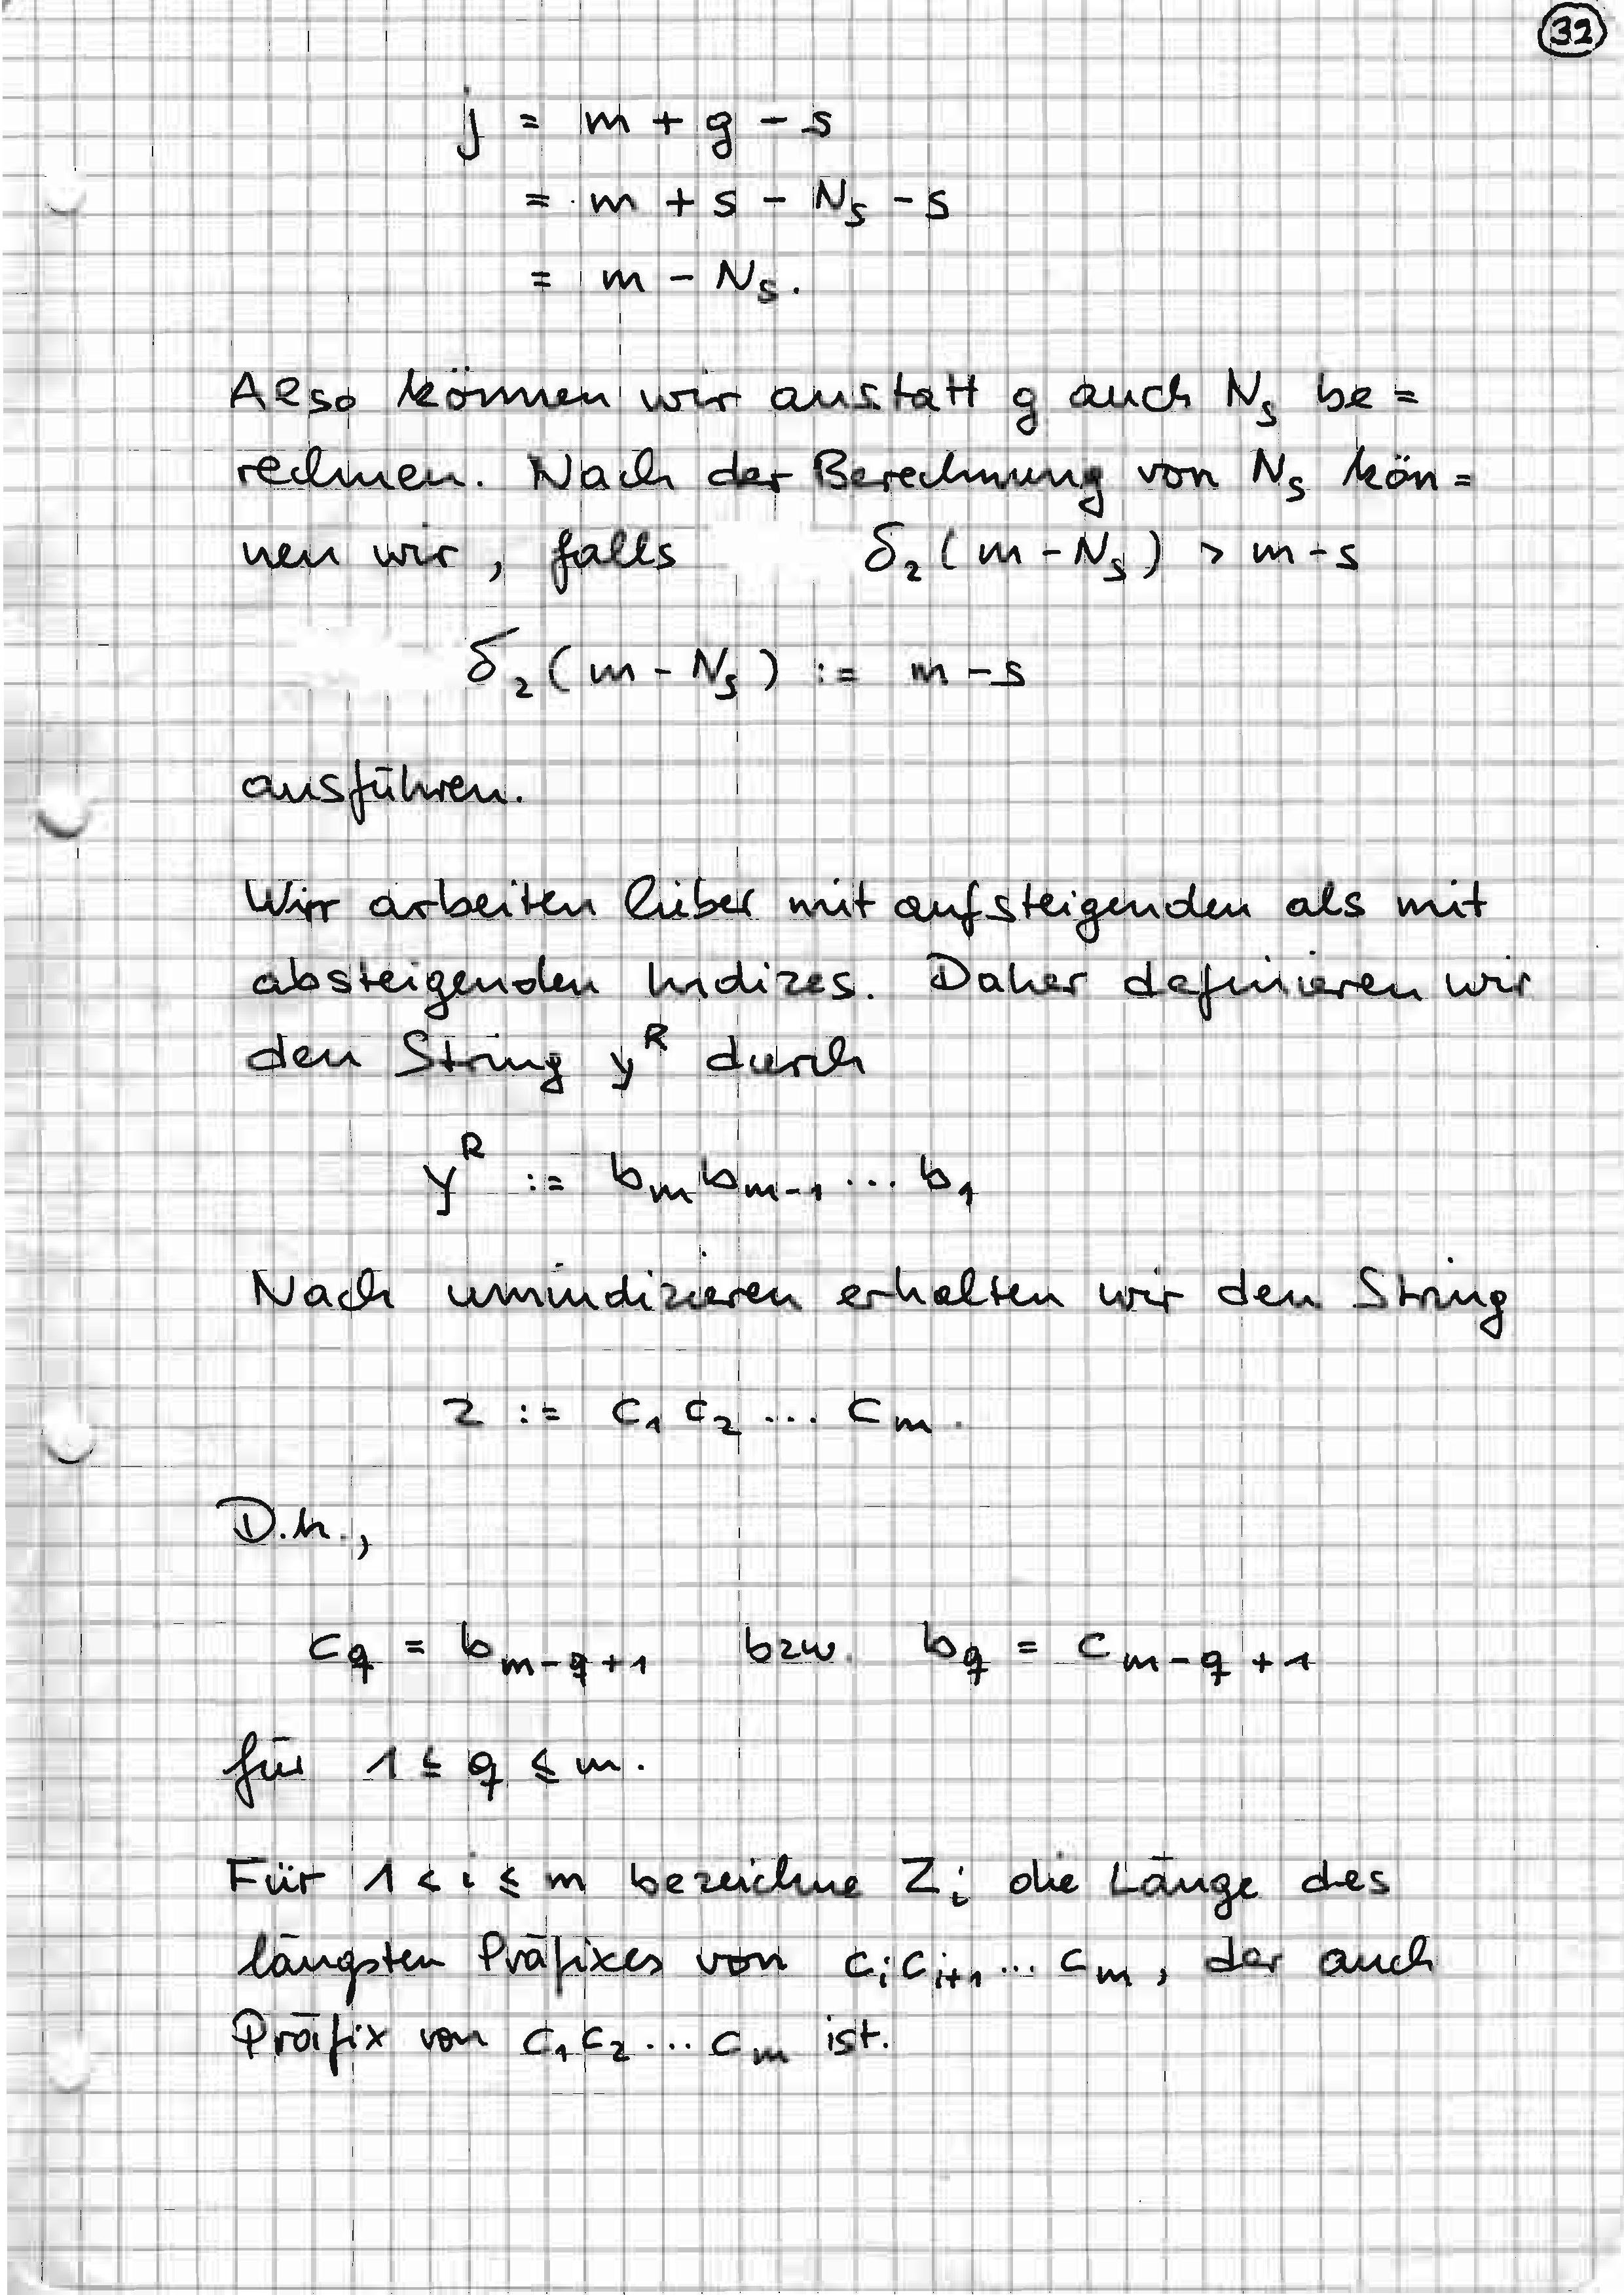 32
j = m + g - s
= m + s - N_s - s
= m - N_s.
Also können wir anstatt g auch N_s be=
rechnen. Nach der Berechnung von N_s kön=
nen wir, falls δ_2(m - N_s) > m - s
δ_2(m - N_s) := m - s
ausführen.
Wir arbeiten lieber mit aufsteigenden als mit
absteigenden Indizes. Daher definieren wir
den String y^R durch
y^R := b_m b_{m-1} ... b_1
Nach umindizieren erhalten wir den String
z := c_1 c_2 ... c_m.
D.h.,
c_q = b_{m-q+1} bzw. b_q = c_{m-q+1}
für 1 ≤ q ≤ m.
Für 1 < i ≤ m bezeichne Z_i die Länge des
längsten Präfixes von c_i c_{i+1} ... c_m, der auch
Präfix von c_1 c_2 ... c_m ist.